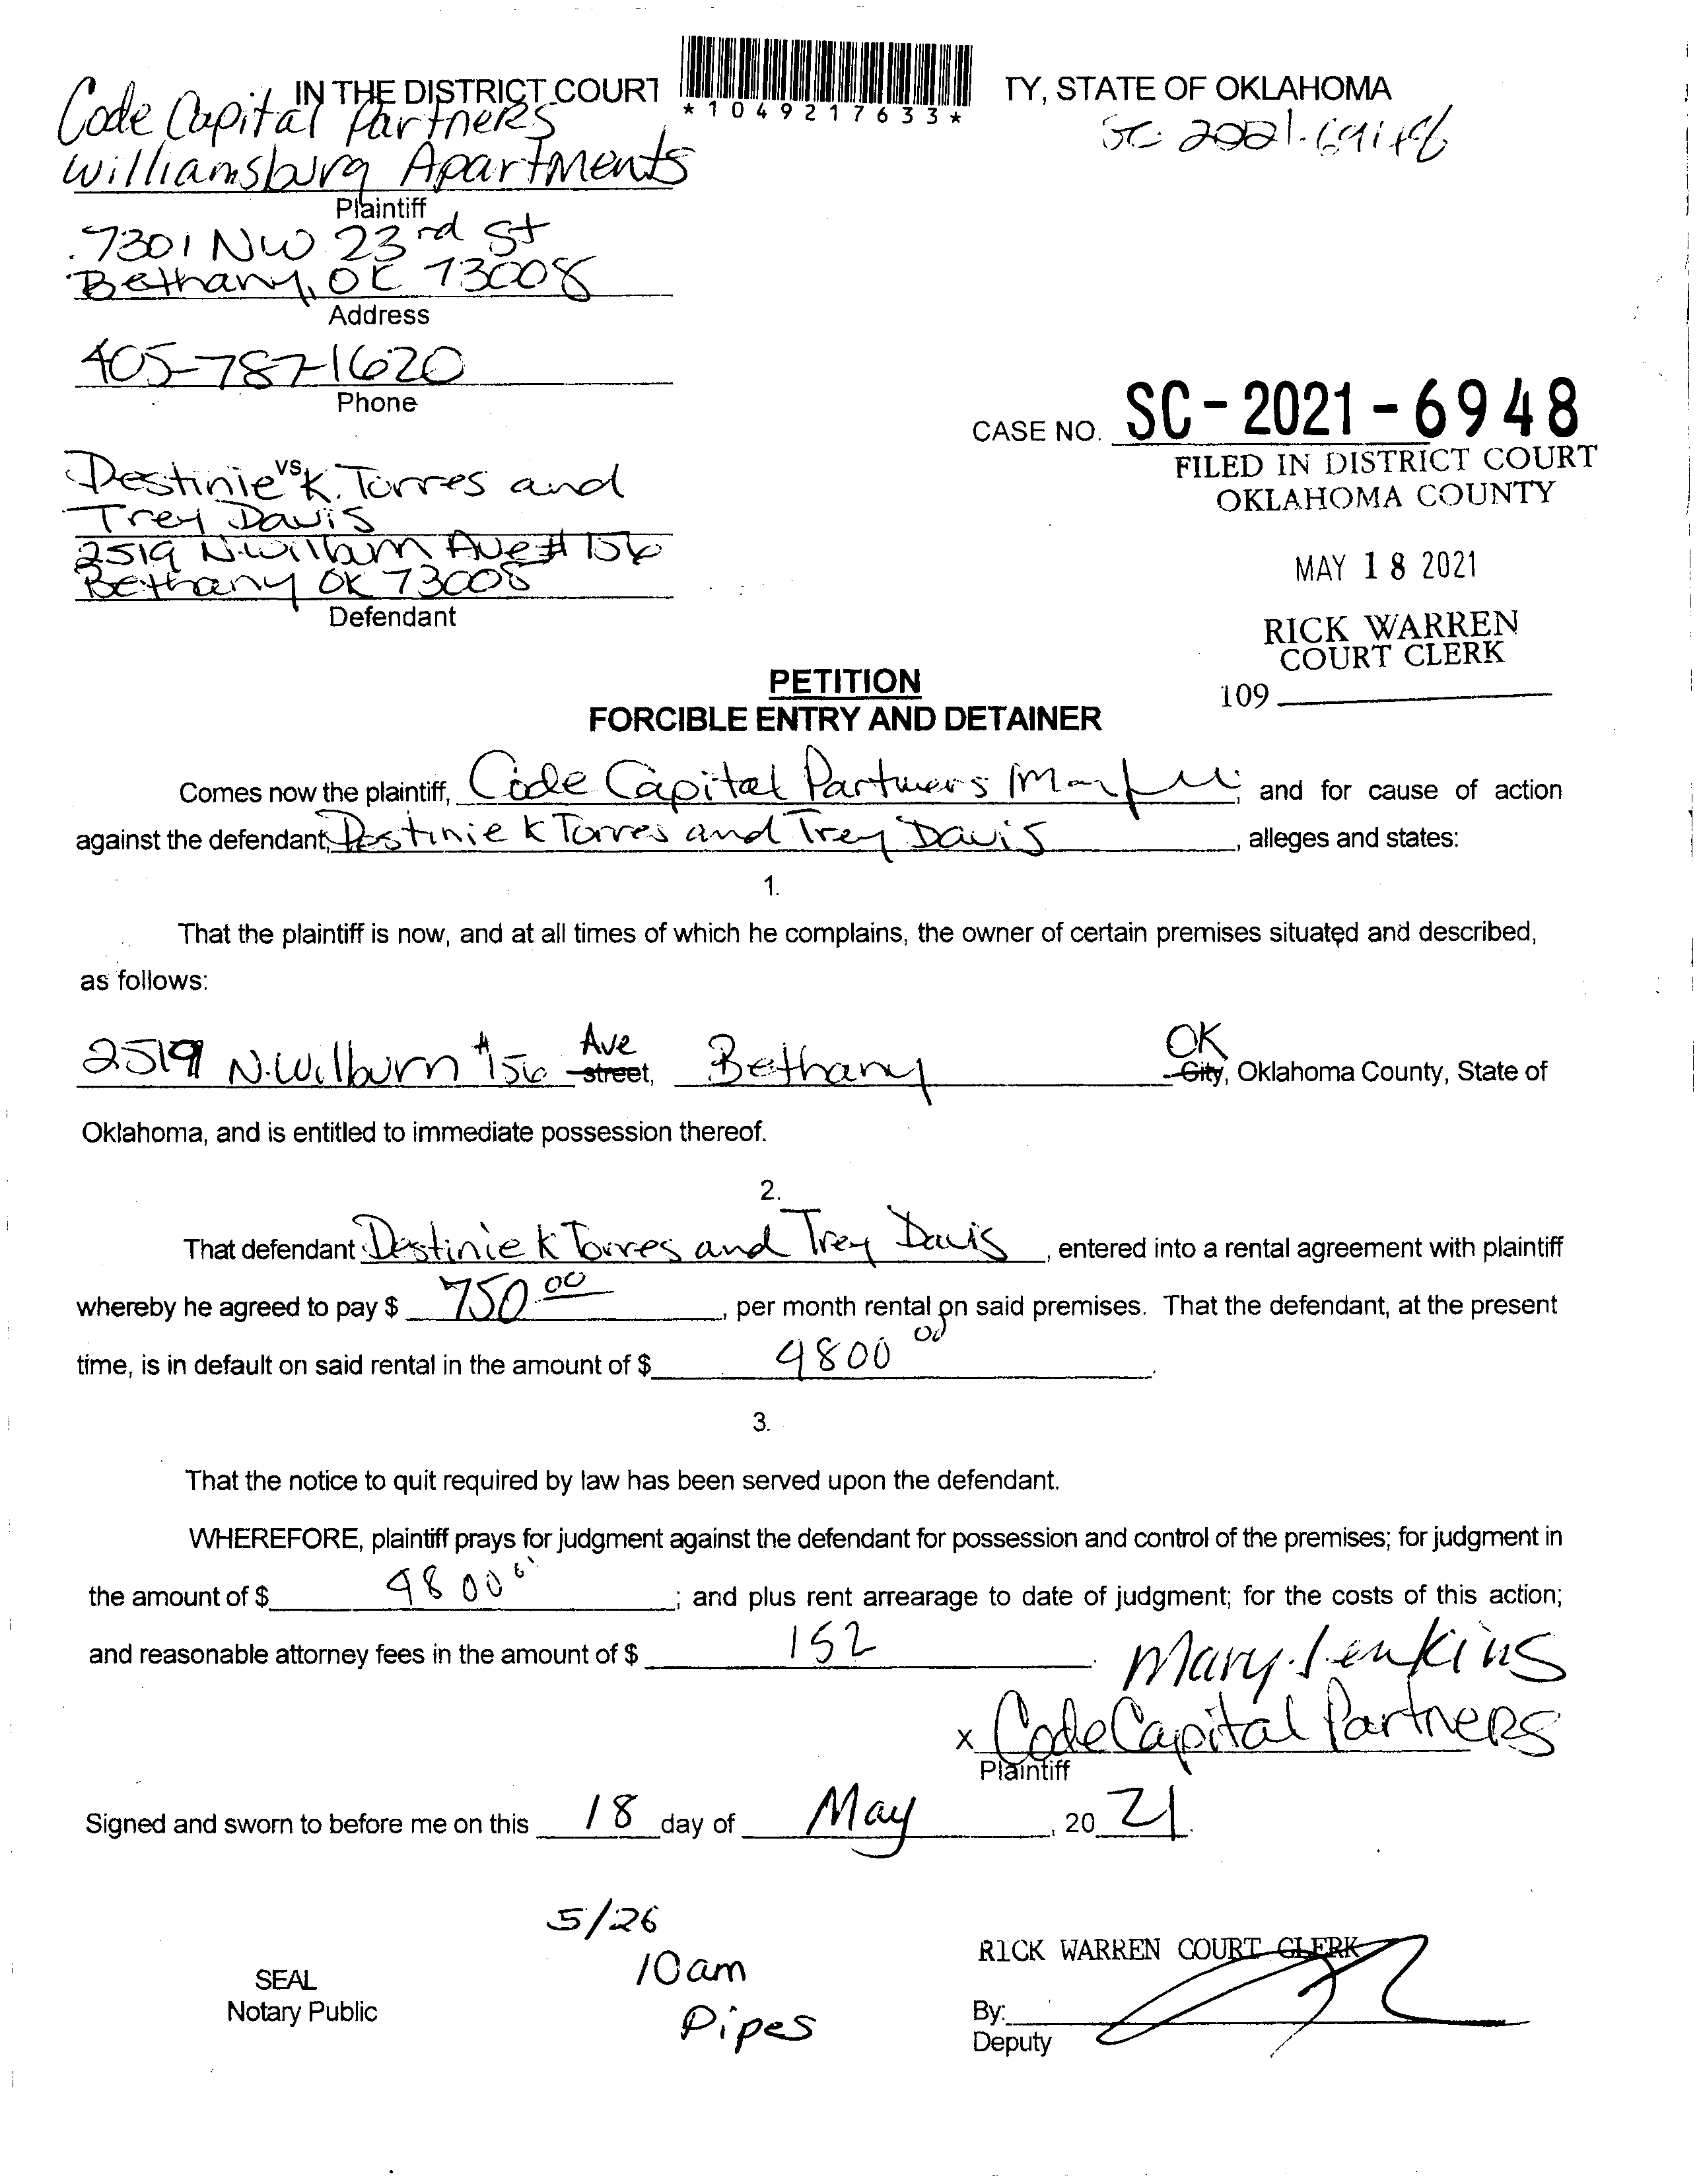 IN THE DISTRICT COURT
*1049217633*
TY, STATE OF OKLAHOMA
Code Capital Partners
Williamsburg Apartments
Plaintiff
SC 2021.6948
7301 NW 23rd St
Bethany, OK 73008
Address
405-787-1620
Phone
CASE NO. SC-2021-6948
FILED IN DISTRICT COURT
OKLAHOMA COUNTY
MAY 18 2021
RICK WARREN
COURT CLERK
109
vs
Destinie K. Torres and
Trey Davis
2519 N. Wilburn Ave # 156
Bethany OK 73008
Defendant
PETITION
FORCIBLE ENTRY AND DETAINER
Comes now the plaintiff, Code Capital Partners and for cause of action
against the defendant, Destinie K Torres and Trey Davis, alleges and states:
1.
That the plaintiff is now, and at all times of which he complains, the owner of certain premises situated and described,
as follows:
2519 N. Wilburn #156 Ave street, Bethany OK City, Oklahoma County, State of
Oklahoma, and is entitled to immediate possession thereof.
2.
That defendant Destinie K Torres and Trey Davis, entered into a rental agreement with plaintiff
whereby he agreed to pay $ 750.00, per month rental on said premises. That the defendant, at the present
time, is in default on said rental in the amount of $ 9800 00.
3.
That the notice to quit required by law has been served upon the defendant.
WHEREFORE, plaintiff prays for judgment against the defendant for possession and control of the premises; for judgment in
the amount of $ 9800 00; and plus rent arrearage to date of judgment; for the costs of this action;
and reasonable attorney fees in the amount of $ 152.
Mary Jenkins
x Code Capital Partners
Plaintiff
Signed and sworn to before me on this 18 day of May, 20 21.
5/26
10am
Pipes
SEAL
Notary Public
RICK WARREN COURT CLERK
By:
Deputy